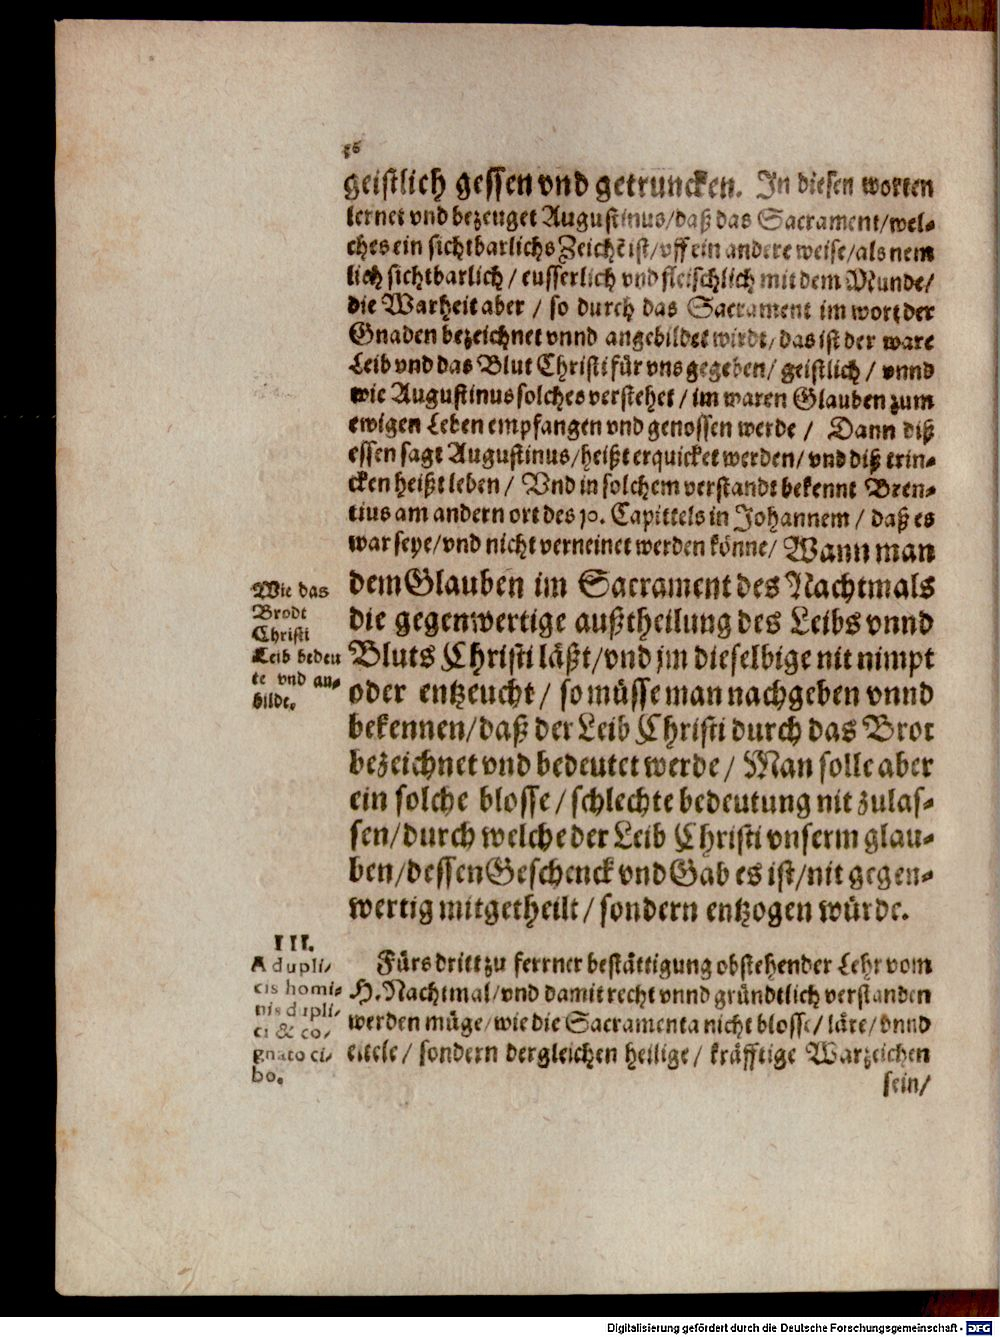 56
geistlich gessen vnd getruncken. In diesen worten
lernet vnd bezeuget Augustinus/daß das Sacrament/wel-
ches ein sichtbarlichs Zeichē ist/vff ein andere weise/als nem
lich sichtbarlich/ eusserlich vnd fleischlich mit dem Munde/
die Warheit aber / so durch das Sacrament im wort der
Gnaden bezeichnet vnnd angebildet wirdt/das ist der ware
Leib vnd das Blut Christi für vns gegeben/ geistlich / vnnd
wie Augustinus solches verstehet / im waren Glauben zum
ewigen Leben empfangen vnd genossen werde / Dann diß
essen sagt Augustinus/heißt erquicket werden/ vnd diß trin-
cken heißt leben / Vnd in solchem verstandt bekennt Bren-
tius am andern ort des 10. Capittels in Johannem / daß es
war seye/vnd nicht verneinet werden könne/ Wann man
Wie das
Brodt
Christi
Leib bedeu
te vnd an-
bilde.
dem Glauben im Sacrament des Nachtmals
die gegenwertige außtheilung des Leibs vnnd
Bluts Christi läßt/vnd jm dieselbige nit nimpt
oder entzeucht / so müsse man nachgeben vnnd
bekennen/daß der Leib Christi durch das Brot
bezeichnet vnd bedeutet werde / Man solle aber
ein solche blosse / schlechte bedeutung nit zulas-
sen/durch welche der Leib Christi vnserm glau-
ben/dessen Geschenck vnd Gab es ist/nit gegen-
wertig mitgetheilt / sondern entzogen würde.
III.
A dupli-
cis homi-
nis dupli-
ci & co-
gnato ci-
bo.
Fürs dritt zu ferrner bestättigung obstehender Lehr vom
H. Nachtmal/vnd damit recht vnnd gründtlich verstanden
werden müge/wie die Sacramenta nicht blosse/ läre/ vnnd
eitele / sondern dergleichen heilige / kräfftige Warzeichen
sein/
Digitalisierung gefördert durch die Deutsche Forschungsgemeinschaft - DFG